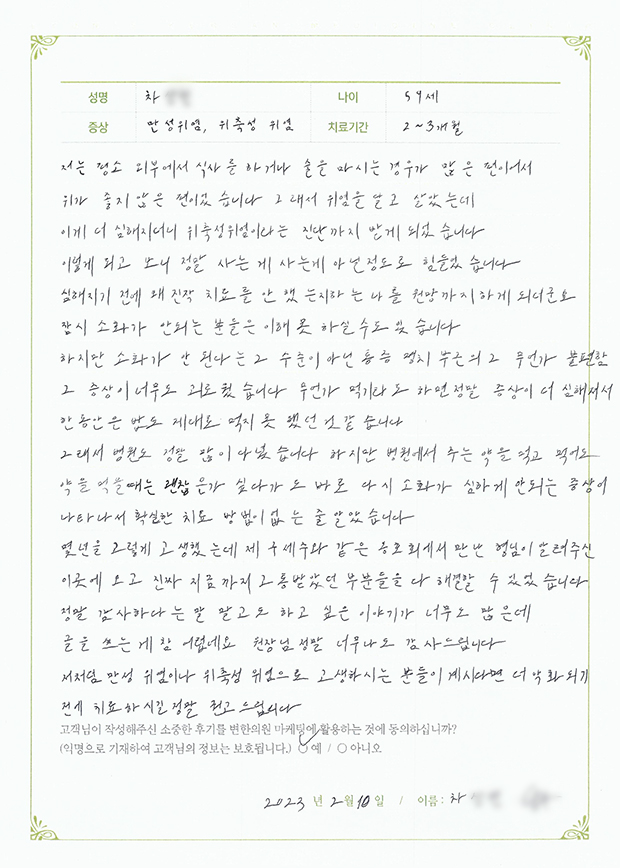 성명 차 나이 59세
증상 만성위염, 위축성 위염 치료기간 2~3개월
저는 평소 외부에서 식사를 하거나 술을 마시는 경우가 많은 편이어서
위가 좋지 않은 편이었습니다 그래서 위염을 달고 살았는데
이게 더 심해지더니 위축성위염이라는 진단까지 받게 되었습니다
이렇게 되고 보니 정말 사는 게 사는게 아닌정도로 힘들었습니다
심해지기 전에 왜 진작 치료를 안 했는지하는 나를 원망까지하게 되더군요
잠시 소화가 안되는 분들은 이해 못 하실수도 있습니다
하지만 소화가 안 된다는 그 수준이 아닌 통증 명치 부근의 그 무언가 불편함
그 증상이 너무도 괴로웠습니다 무언가 먹기라도 하면 정말 증상이 더 심해져서
한동안은 밥도 제대로 먹지 못 했던것 같습니다
그래서 병원도 정말 많이 다녔습니다 하지만 병원에서 주는 약을 먹고 먹어도
약을 먹을때는 괜찮은가 싶다가도 바로 다시 소화가 심하게 안되는 증상이
나타나서 확실한 치료 방법이 없는 줄 알았습니다
몇년을 그렇게 고생했는데 제 구세주와 같은 동호회에서 만난 형님이 알려주신
이곳에 오고 진짜 지금까지 고통받았던 부분들을 다 해결할 수 있었습니다
정말 감사하다는 말 말고도 하고 싶은 이야기가 너무도 많은데
글을 쓰는게 참 어렵네요 원장님 정말 너무나도 감사드립니다
저처럼 만성 위염이나 위축성 위염으로 고생하시는 분들이 계시다면 더 악화되기
전에 치료하시길 정말 권고드립니다
고객님이 작성해주신 소중한 후기를 변한의원 마케팅에 활용하는 것에 동의하십니까?
(익명으로 기재하여 고객님의 정보는 보호됩니다.) ○ 예 / ○ 아니오
2023 년 2월 10일 / 이름 : 차